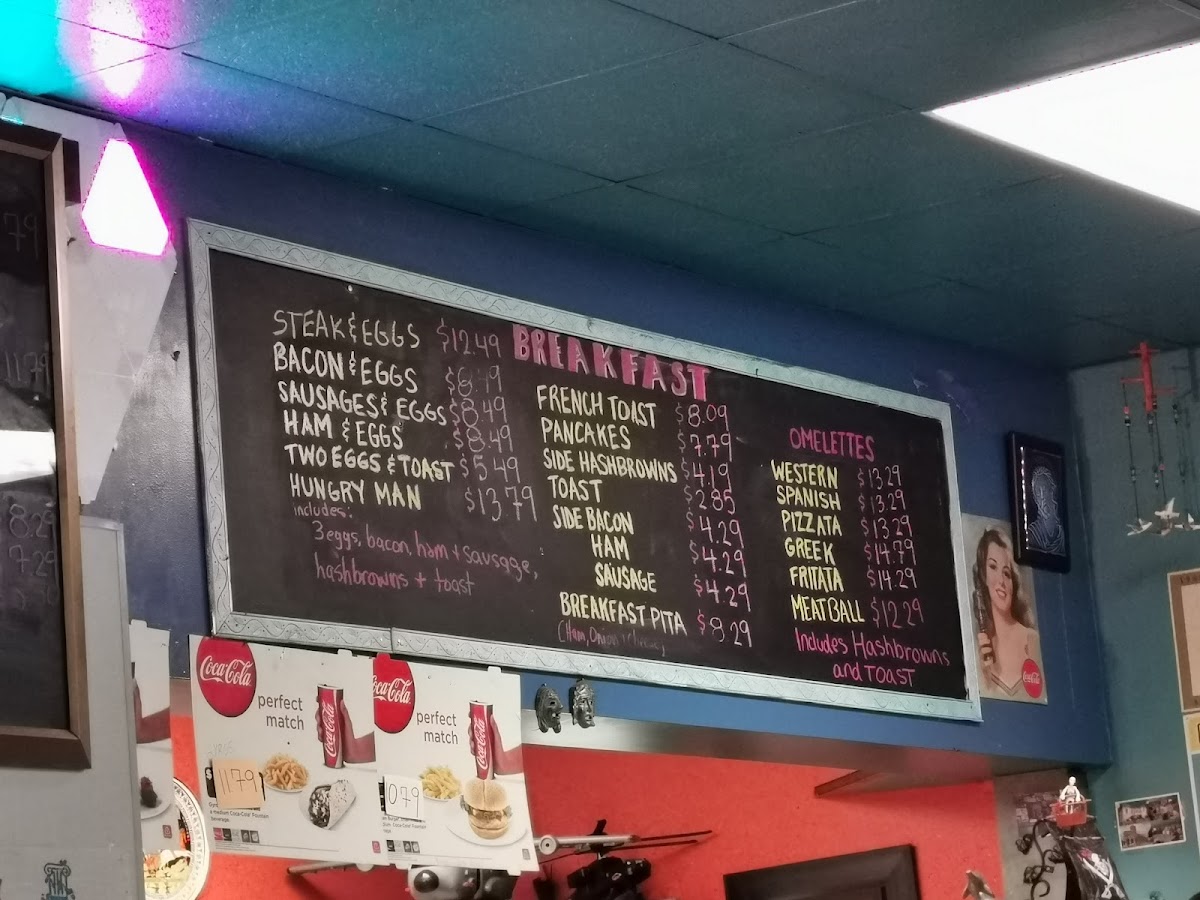 STEAK & EGGS $12.49
BACON & EGGS $8.49
SAUSAGES & EGGS $8.49
HAM & EGGS $8.49
TWO EGGS & TOAST $5.49
HUNGRY MAN $13.79
includes:
3 eggs, bacon, ham + sausage,
hashbrowns + toast
BREAKFAST
FRENCH TOAST $8.09
PANCAKES $7.79
SIDE HASHBROWNS $4.19
TOAST $2.85
SIDE BACON $4.29
HAM $4.29
SAUSAGE $4.29
BREAKFAST PITA $8.29
(Ham,
OMELETTES
WESTERN $13.29
SPANISH $13.29
PIZZATA $13.29
GREEK $14.79
FRITATA $14.29
MEATBALL $12.29
Includes Hashbrowns
and TOAST
79
11.79
8.29
7.29
Coca-Cola
perfect
match
Coca-Cola
GYROS
$ 11.79
a medium Coca-Cola Fountain
beverage.
Coca-Cola
perfect
match
Coca-Cola
10.79
Coca-Cola